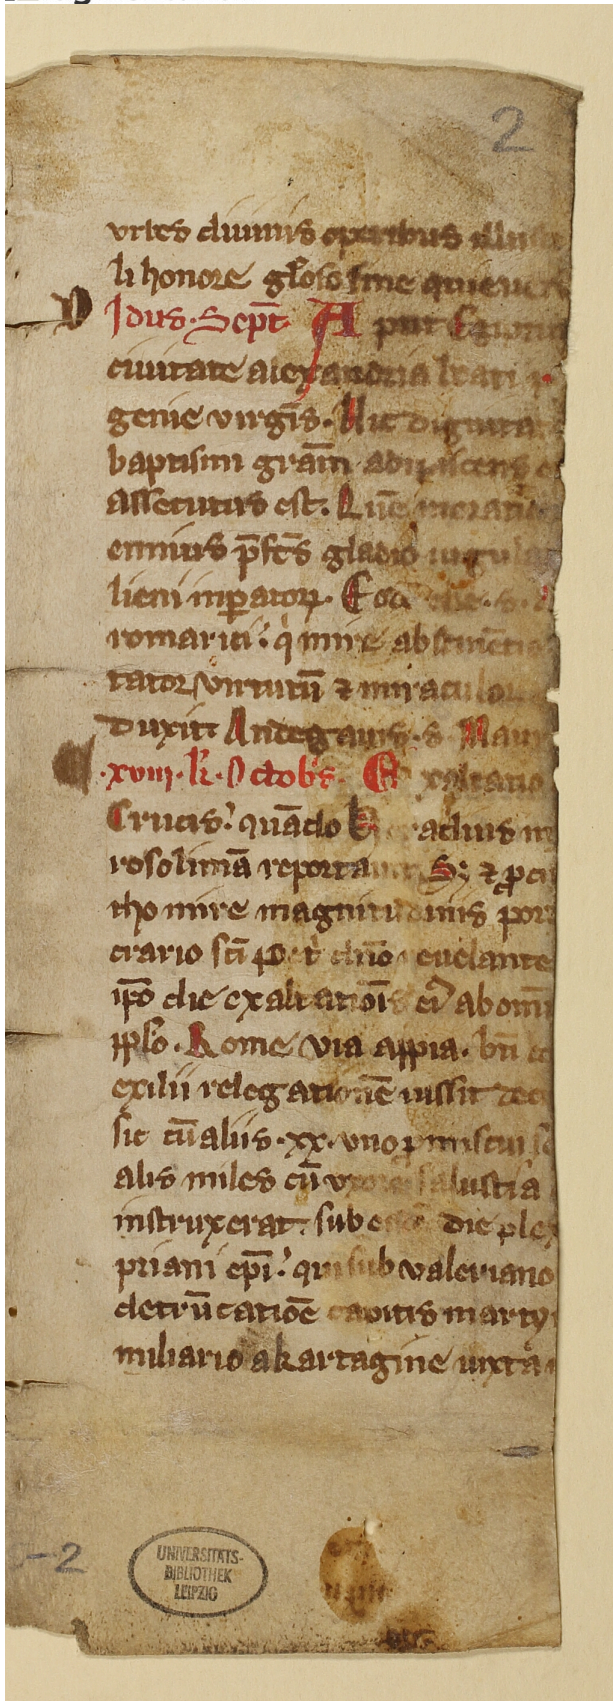 2
vrtes diuinis operibus illust
li honore gl'oso fine quieuer
D Idus. Sept̄. Aput Egiptu
ciuitate alexandria beati p
genie virgīs. Hic dignitat
baptismi grām adipiscens
assecutus est. Quē
ennius p̄fcs gladio iugulat
lieni inperatoꝝ. Eodē die. s.
romarici. q mire abstinētie
tator virtutū ⁊ miraculoꝝ
duxit Andegauis. s. Maur
.xviii. k. Octobs. Exaltatio
Crucis. quādo Eraclius
rosolimā reportauit. Sꝫ ⁊
tho mire magnitudinis port
crario sci Petri dno reuelante
ipo die exaltatiōis ei ab omi
pplo. Rome via appia. bti
exilii relegationē iussit dec
sic cū aliis .xx. vnoꝝ
alis miles cū vxore salustia
instruxerat. sub die plex
priani epi. qui sub valeriano
detrūcatiōe capitis martyr
miliario a kartagine iuxta
-2
UNIVERSITÄTS-
BIBLIOTHEK
LEIPZIG